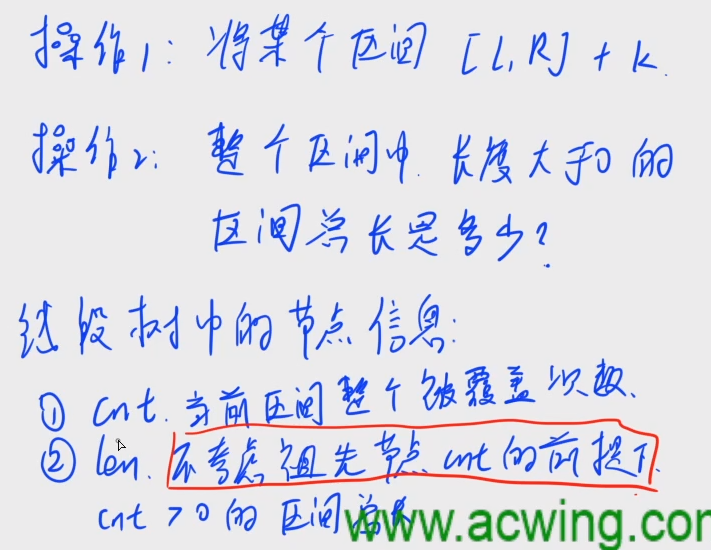 操作1: 将某个区间 [L,R] + k.
操作2: 整个区间中, 长度大于0的
区间总长是多少?
线段树中的节点信息:
① cnt. 当前区间整个被覆盖次数.
② len. 不考虑祖先节点cnt的前提下.
cnt > 0 的 区间总长
www.acwing.com